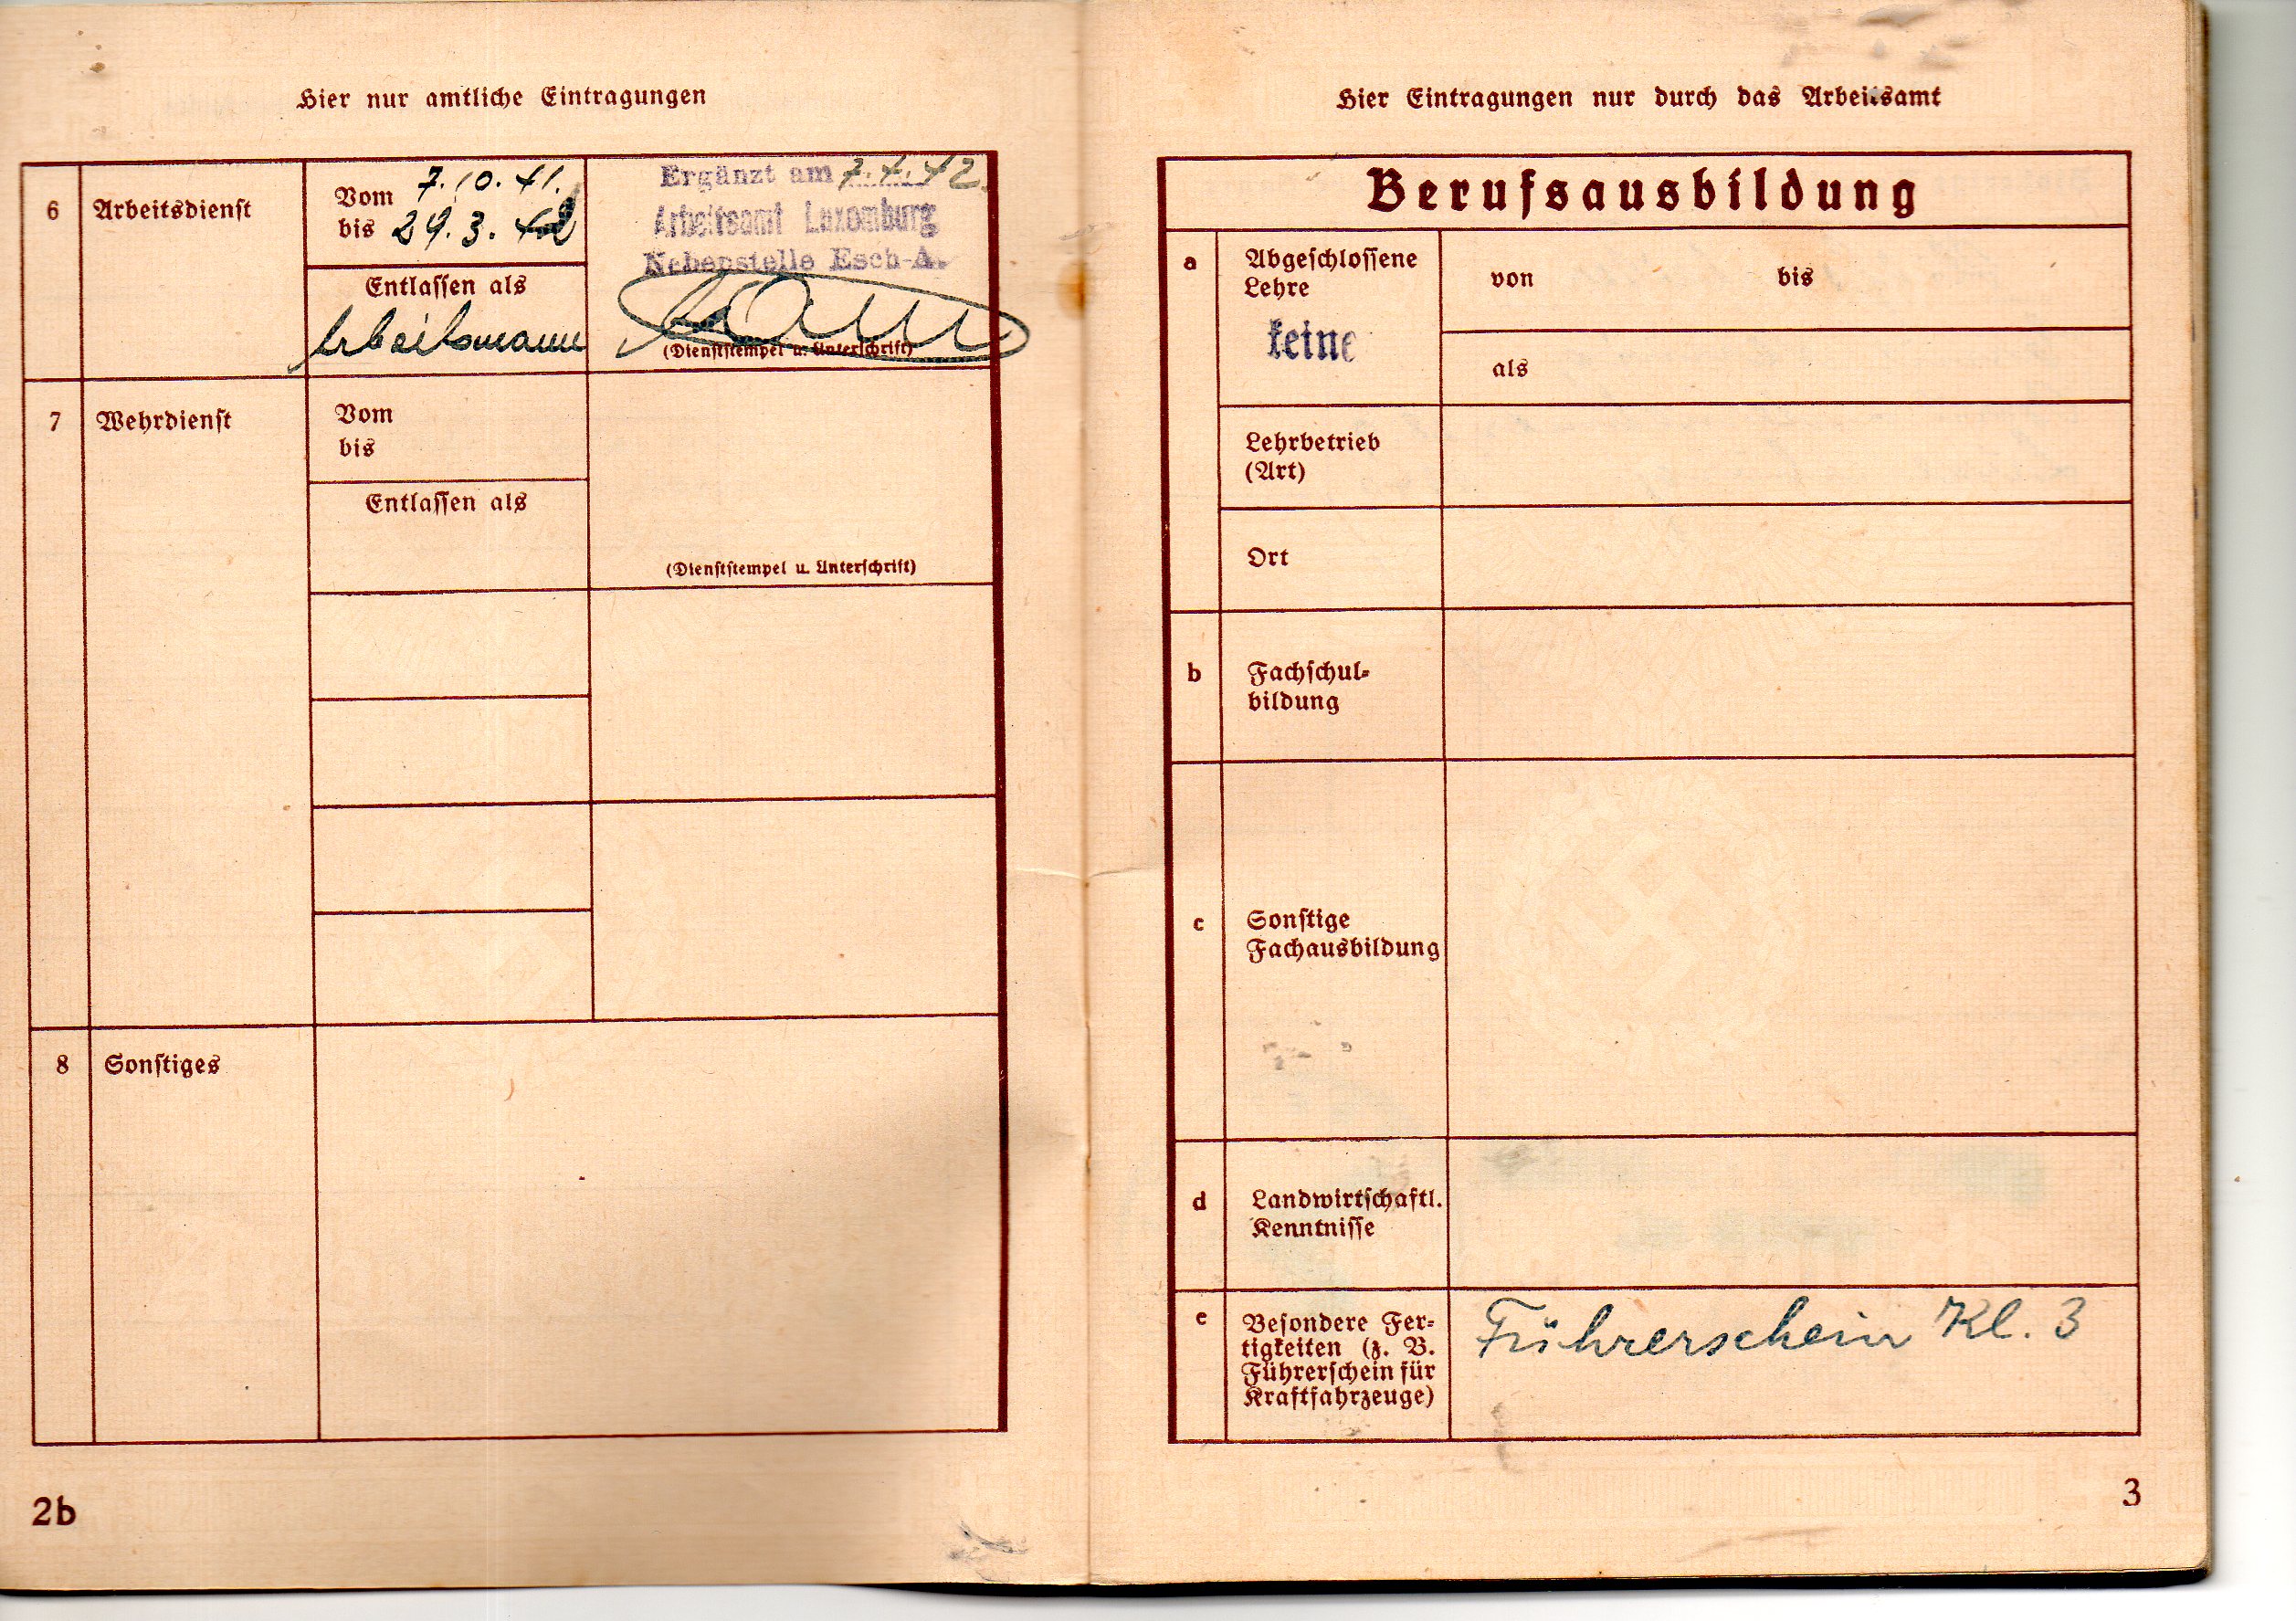 Hier nur amtliche Eintragungen
6 Arbeitsdienst
Vom 7.10.41.
bis 29.3.42
Entlassen als
Arbeitsmann
Ergänzt am 7.4.42.
Arbeitsamt Luxemburg
Nebenstelle Esch-A.
(Dienststempel u. Unterschrift)
7 Wehrdienst
Vom
bis
Entlassen als
(Dienststempel u. Unterschrift)
8 Sonstiges
2b
Hier Eintragungen nur durch das Arbeitsamt
Berufsausbildung
a Abgeschlossene
Lehre
keine
von bis
als
Lehrbetrieb
(Art)
Ort
b Fachschul-
bildung
c Sonstige
Fachausbildung
d Landwirtschaftl.
Kenntnisse
e Besondere Fer-
tigkeiten (z. B.
Führerschein für
Kraftfahrzeuge)
Führerschein Kl. 3
3